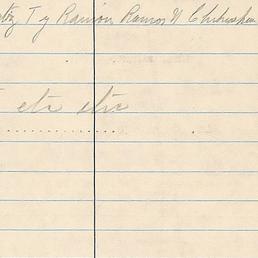 T y Ramon Ramos N Chihuahua
etc etc